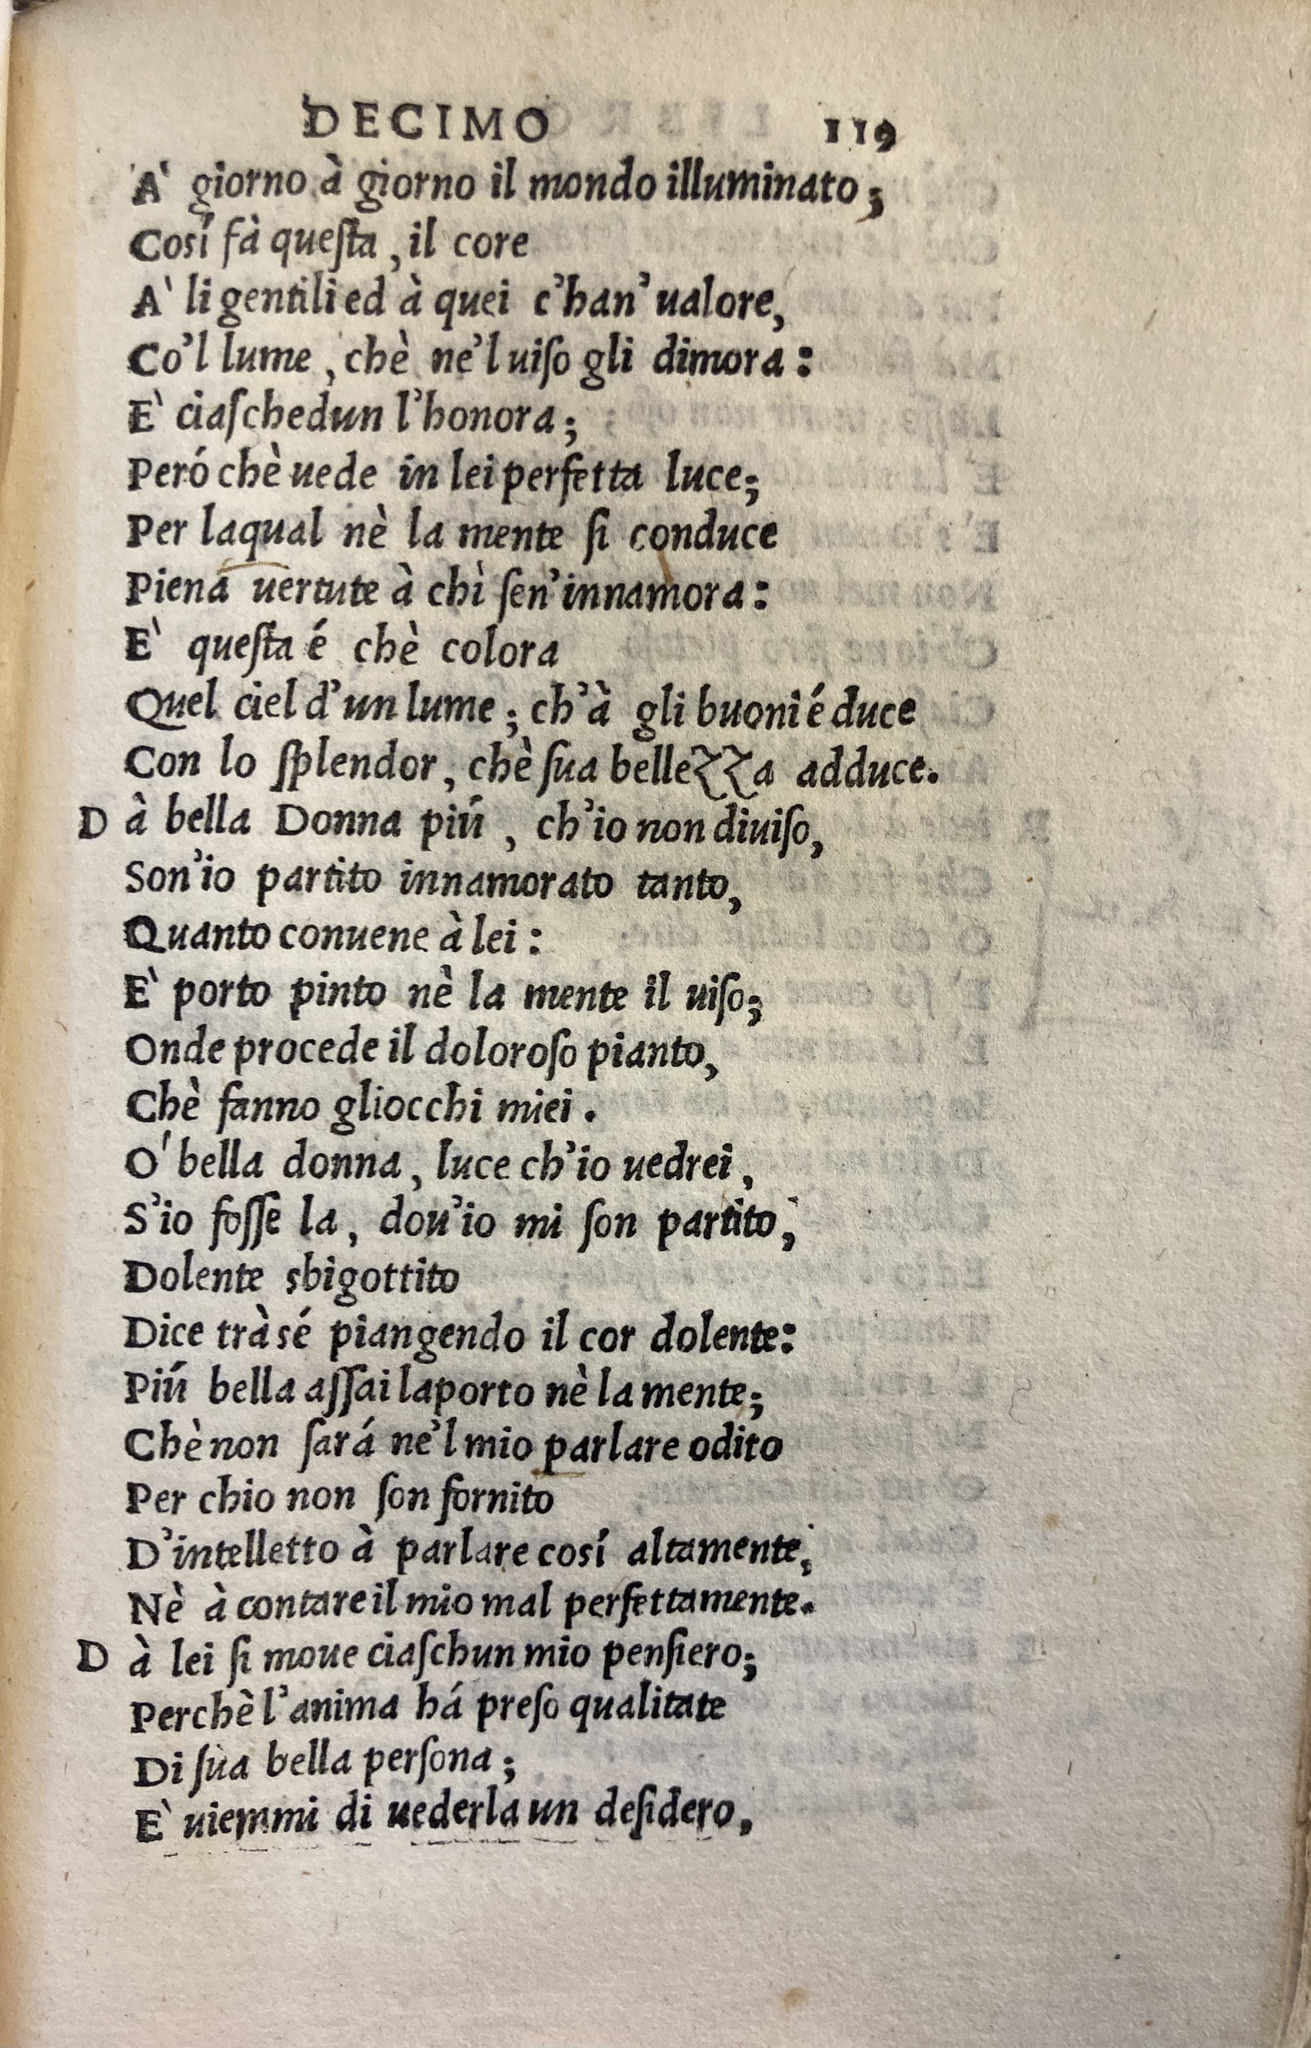 DECIMO 119
A` giorno à giorno il mondo illuminato;
Cosí fà queſta, il core
A` li gentili ed à quei c'han' ualore,
Co'l lume, chè ne'l uiſo gli dimora:
E` ciaſchedun l'honora;
Peró chè uede in lei perfetta luce;
Per laqual nè la mente ſi conduce
Piena uertute à chì ſen'innamora:
E` queſta é chè colora
Quel ciel d'un lume; ch'à gli buoni é duce
Con lo ſplendor, chè ſua bellezza adduce.
D à bella Donna piú, ch'io non diuiſo,
Son'io partito innamorato tanto,
Quanto conuene à lei:
E` porto pinto nè la mente il uiſo;
Onde procede il doloroſo pianto,
Chè fanno gliocchi miei.
O' bella donna, luce ch'io uedrei,
S'io foſſe la, dou'io mi ſon partito,
Dolente sbigottito
Dice trà sé piangendo il cor dolente:
Piú bella aſſai laporto nè la mente;
Chè non ſará ne'l mio parlare odito
Per chio non ſon fornito
D'intelletto à parlare cosí altamente,
Nè à contare il mio mal perfettamente.
D à lei ſi moue ciaſchun mio penſiero;
Perchè l'anima há preſo qualitate
Di ſùa bella perſona;
E` uiemmi di uederla un deſidero,